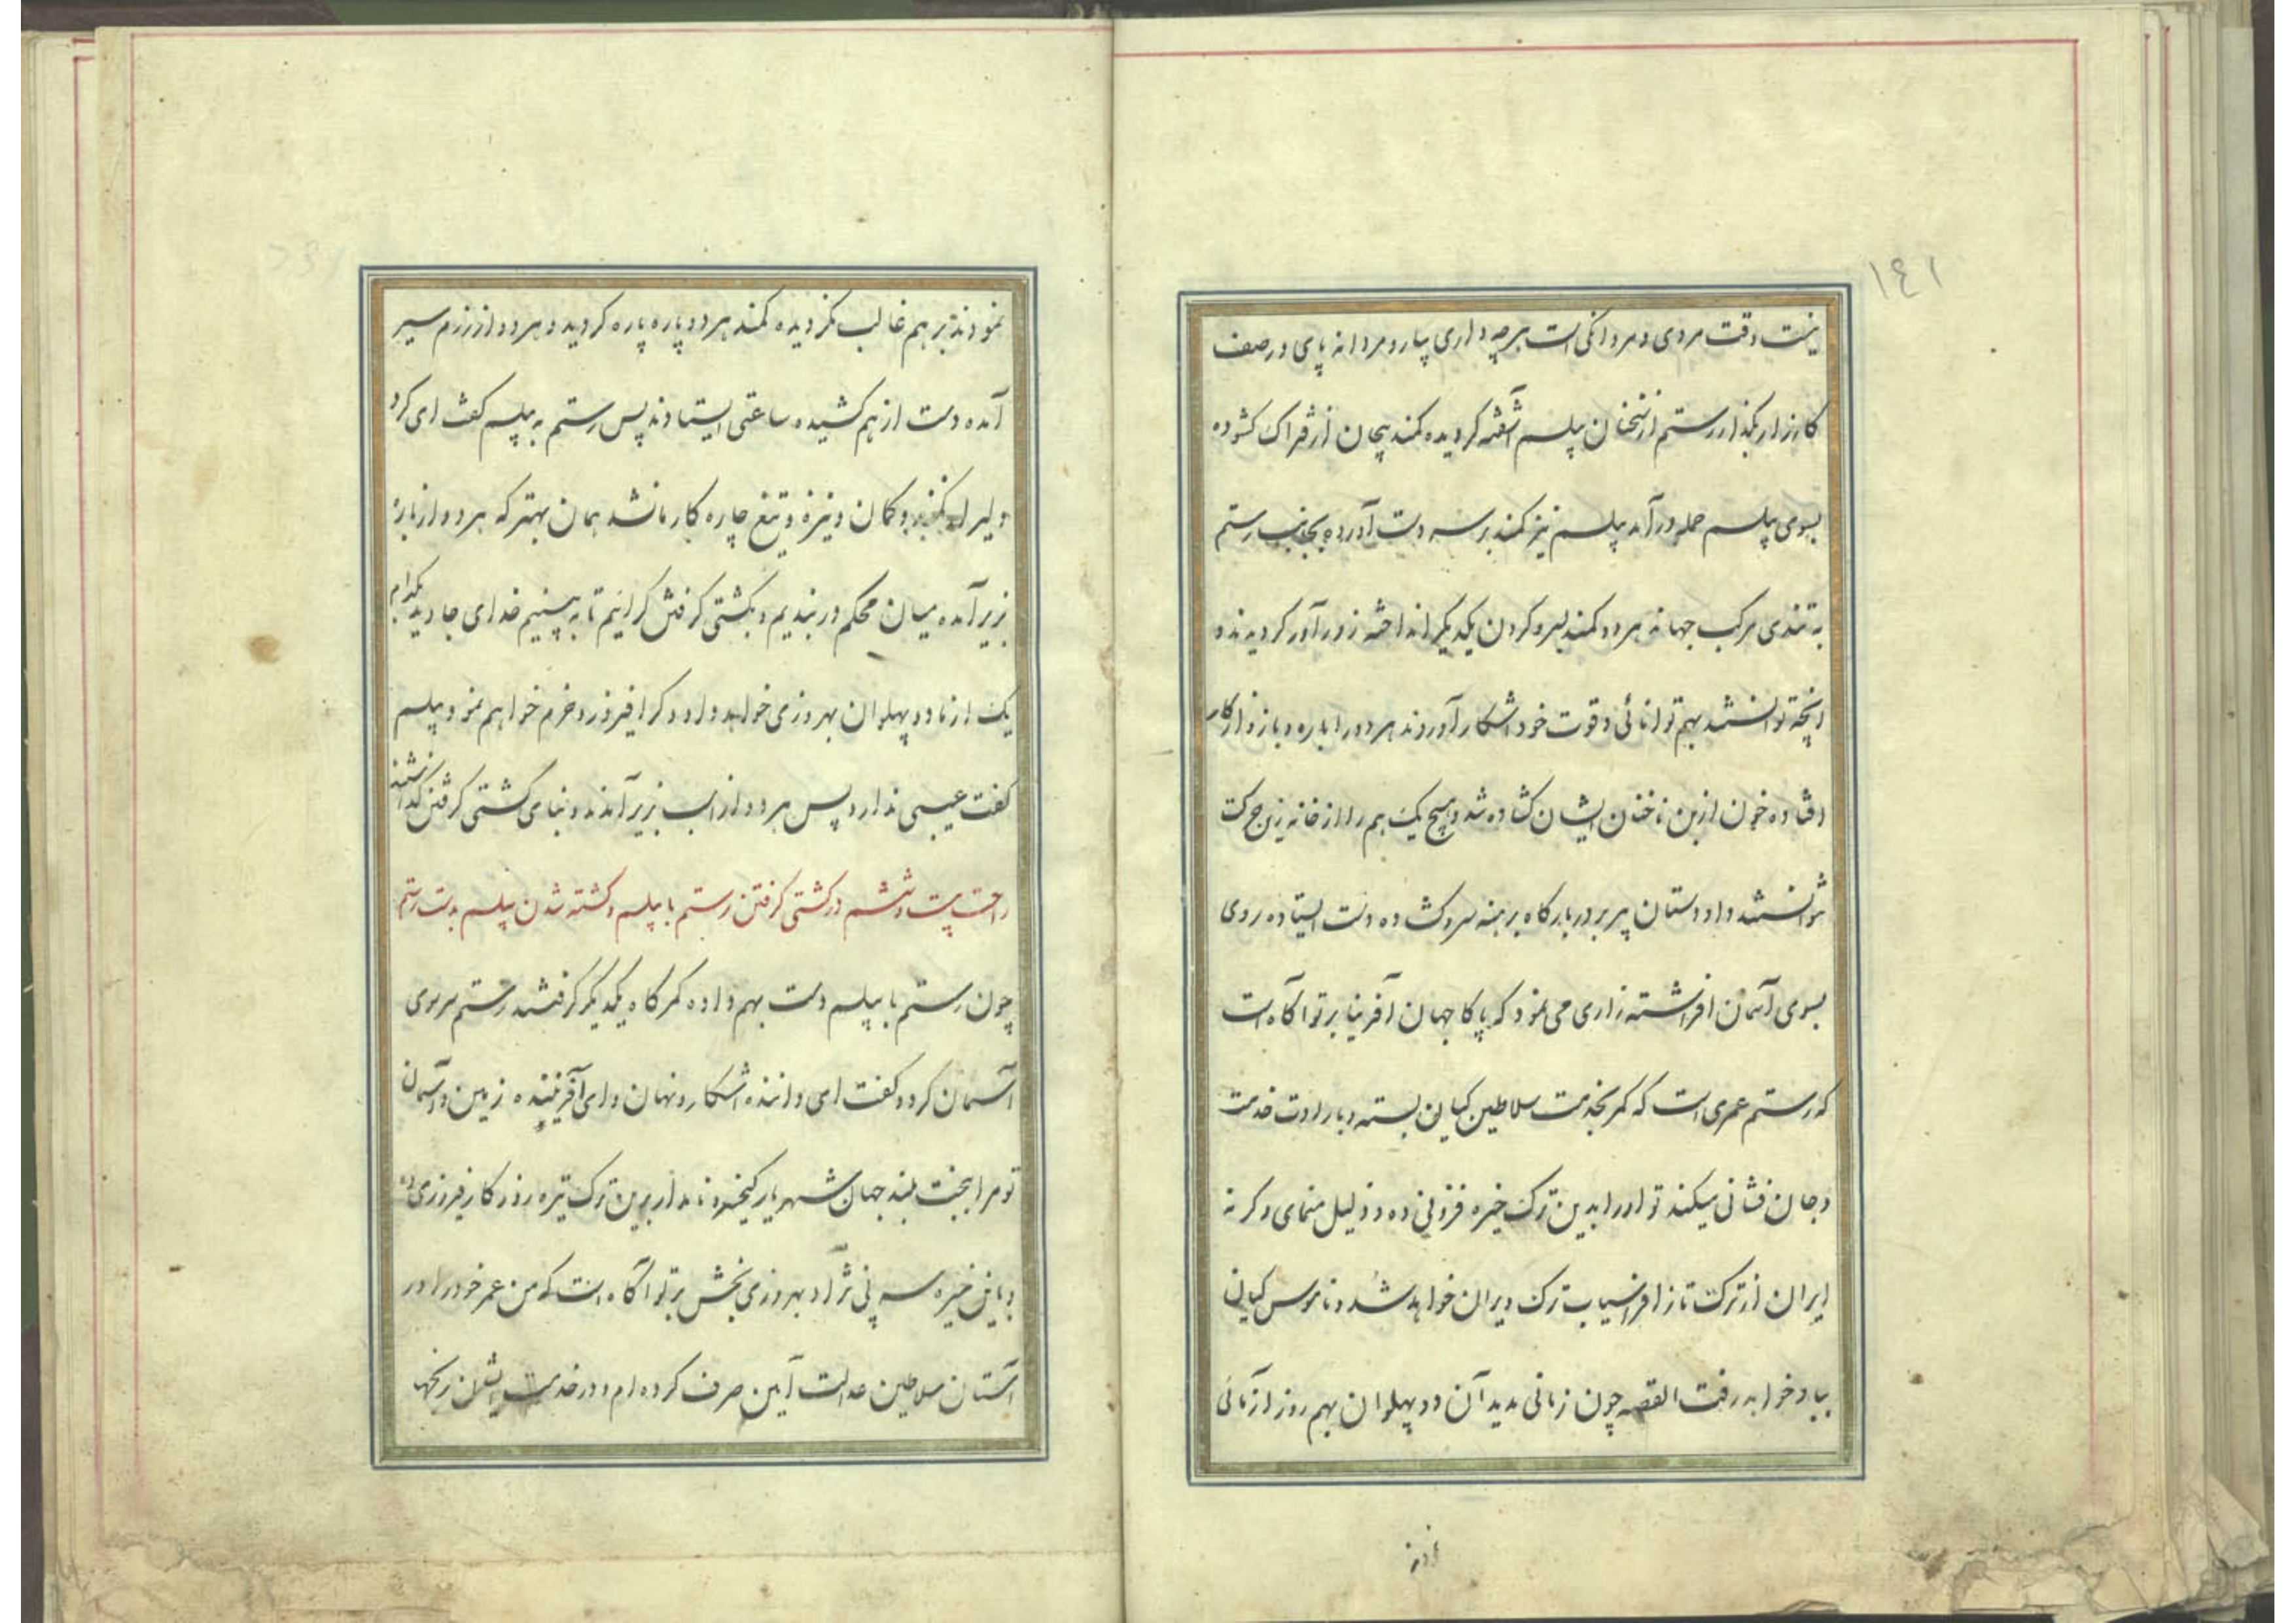 ۱٤۱
نیست وقت مردی و مردانگی است هرچه داری بیار و مردانه پای در صف
کارزار بگذار رستم از سخنان پیلسم آشفته گردیده کمند پیچان از فتراک گشوده
بسوی پیلسم حمله درآمد پیلسم نیز کمند بر سر دست آورده بجانب رستم
به تندی مرکب جهاند هر دو کمند بسر و گردن یکدیگر انداخته زورآور گردیدند و
آنچه توانستند بهم توانائی و قوت خود آشکار آوردند هر دو را باره و بازو از کار
افتاده خون از بن ناخنان ایشان گشاده شد و هیچ یک هم را از خانه زین حرکت
نتوانستند داد دستان پیر بر در بارگاه برهنه سر و گشاده دست ایستاده روی
بسوی آسمان افراشته زاری می نمود که پاکا جهان آفرینا بر تو آگاه است
که رستم عمری است که کمر بخدمت سلاطین کیان بسته و بارادت خدمت
و جان فشانی میکند تو او را بدین ترک خیره فزونی ده و ذلیل منمای وگرنه
ایران از ترکتاز افراسیاب ترک ویران خواهد شد و ناموس کیان
بباد خواهد رفت القصه چون زمانی مدید آن دو پهلوان بهم روز آزمائی
نمودند بر هم غالب نگردیده کمند هر دو پاره پاره گردید و هر دو از رزم سیر
آمده دست از هم کشیده ساعتی ایستادند پس رستم به پیلسم گفت ای گرد
دلیر و کمان و نیزه و تیغ چاره کار ما نشد همان بهتر که هر دو از باره
بزیر آمده میان محکم دربندیم و بکشتی گرفتن گرائیم تا به بینیم خدای جاوید بکدام
یک از ما دو پهلوان بهروزی خواهد داد و کرا فیروز و خرم خواهم نمود پیلسم
گفت عیبی ندارد پس هر دو از اسب بزیر آمدند و بنای کشتی گرفتن گذاشتند
داستان بیست و ششم در کشتی گرفتن رستم با پیلسم و کشته شدن پیلسم بدست رستم
چون رستم با پیلسم دست بهم داده کمرگاه یکدیگر گرفتند رستم سر بسوی
آسمان کرد و گفت ای داننده آشکار و نهان و ای آفریننده زمین و آسمان
تو مرا ببخت بلند جهان شهریار کیخسرو نامدار برین ترک تیره روزگار فیروزی ده
و باین خیره سر پی نژاد بهروزی بخش بر تو آگاه است که من عمر خود را در
آستان سلاطین عدالت آیین صرف کرده ام و در خدمت ایشان رنجها